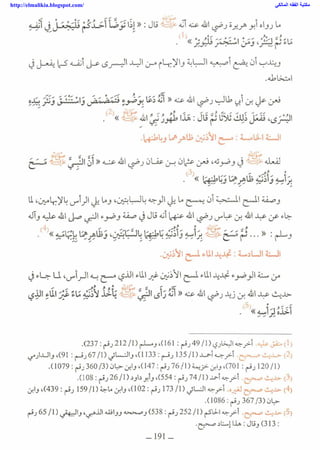 http://elmalikia.blogspot.com/
مكتبة الفقه المالكي
ما رواه أبو هريرة رضي الله عنه أنه ﷺ قال : « إِذَا تَوَضَّأَ أَحَدُكُمْ فَلْيَجْعَلْ فِي أَنْفِهِ
مَاءً ثُمَّ لِيَنْثُرْ، وَمَنْ اسْتَجْمَرَ فَلْيُوتِرْ »(1).
ويندب أن يضع أصبعيه السبابة والإبهام من اليد اليسرى على أنفه كما يفعل في
امتخاطه.
فعن علي بن أبي طالب رضي الله عنه « أَنَّهُ دَعَا بِوَضُوءٍ فَمَضْمَضَ وَاسْتَنْشَقَ وَنَثَرَ بِيَدِهِ
اليُسْرَى، فَفَعَلَ ذَلِكَ ثَلَاثًا ثُمَّ قَالَ : هَذَا طُهُورُ نَبِيِّ اللهِ ﷺ »(2).
السنة الخامسة : مسح الأذنين ظاهرهما وباطنهما.
لفعله ﷺ في وضوئه، فعن عثمان بن عفان رضي الله عنه « أَنَّ النَّبِيَّ ﷺ مَسَحَ
بِرَأْسِهِ وَأُذُنَيْهِ ظَاهِرَهُمَا وَبَاطِنَهُمَا »(3).
وصفة المسح المستحبة أن يمسح ما يلي الوجه بالسبابتين، وما يلي الرأس بالإبهامين، لما
جاء عن عبد الله بن عباس رضي الله عنهما أنه قال في صفة وضوء النبي صلى الله عليه وآله
وسلم : « ... ثُمَّ مَسَحَ ﷺ بِرَأْسِهِ وَأُذُنَيْهِ بَاطِنَهُمَا بِالسَّبَّابَتَيْنِ، وَظَاهِرَهُمَا بِإِبْهَامَيْهِ »(4).
السنة السادسة : تجديد الماء لمسح الأذنين.
من سنة الوضوء تجديد الماء لمسح الأذنين غير الماء الذي مسح به الرأس، لما جاء في
حديث عبد الله بن زيد رضي الله عنه « أَنَّهُ رَأَى النَّبِيَّ ﷺ يَأْخُذُ لِأُذُنَيْهِ مَاءً غَيْرَ المَاءِ الَّذِي
أَخَذَهُ لِرَأْسِهِ »(5).
(1) متفق عليه. أخرجه البخاري (1/ 49 رقم : 161)، ومسلم (1/ 212 رقم : 237).
(2) حديث صحيح. أخرجه أحمد (1/ 135 رقم : 1133)، والنسائي (1/ 67 رقم : 91)، والدارمي
(1/ 120 رقم : 701)، وابن خزيمة (1/ 76 رقم : 147)، وابن حبان (3/ 360 رقم : 1079).
(3) حديث صحيح. أخرجه أحمد (1/ 74 رقم : 554)، وأبو داود (1/ 26 رقم : 108).
(4) حديث صحيح لغيره. أخرجه النسائي (1/ 73 رقم : 102)، وابن ماجة (1/ 159 رقم : 439)، وابن
حبان (3/ 367 رقم : 1086).
(5) حديث صحيح. أخرجه الحاكم (1/ 252 رقم : 538) وصححه ووافقه الذهبي، والبيهقي (1/ 65 رقم
: 313) وقال : هذا إسناد صحيح.
– 191 –